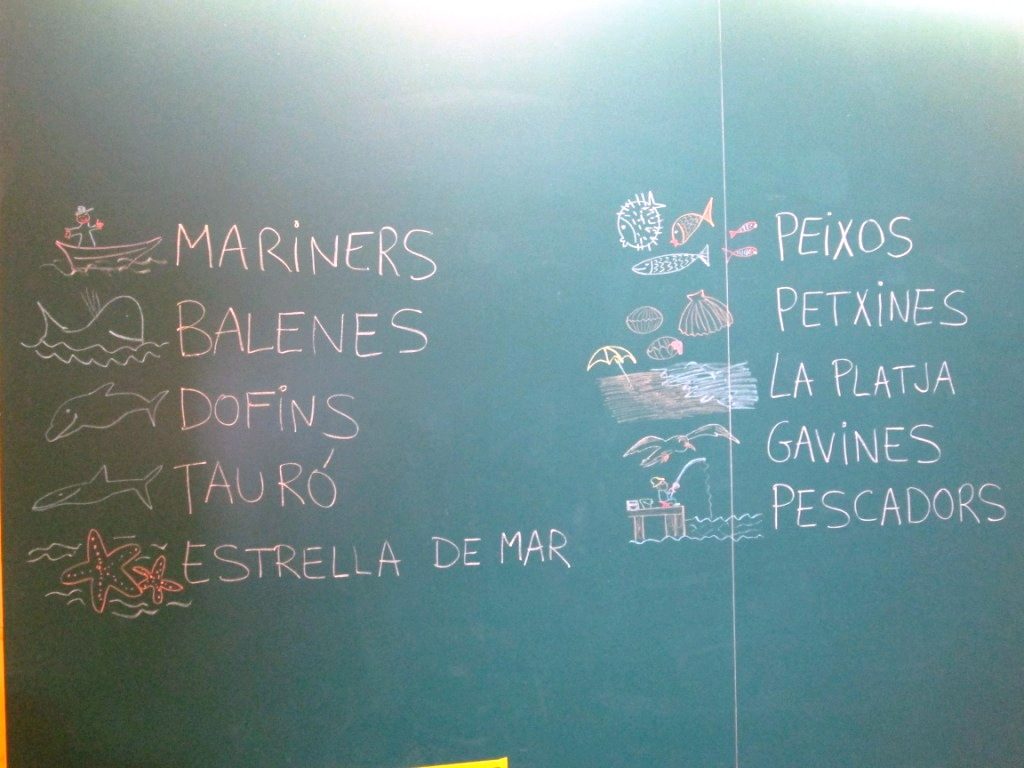 MARINERS
BALENES
DOFINS
TAURÓ
ESTRELLA DE MAR
PEIXOS
PETXINES
LA PLATJA
GAVINES
PESCADORS